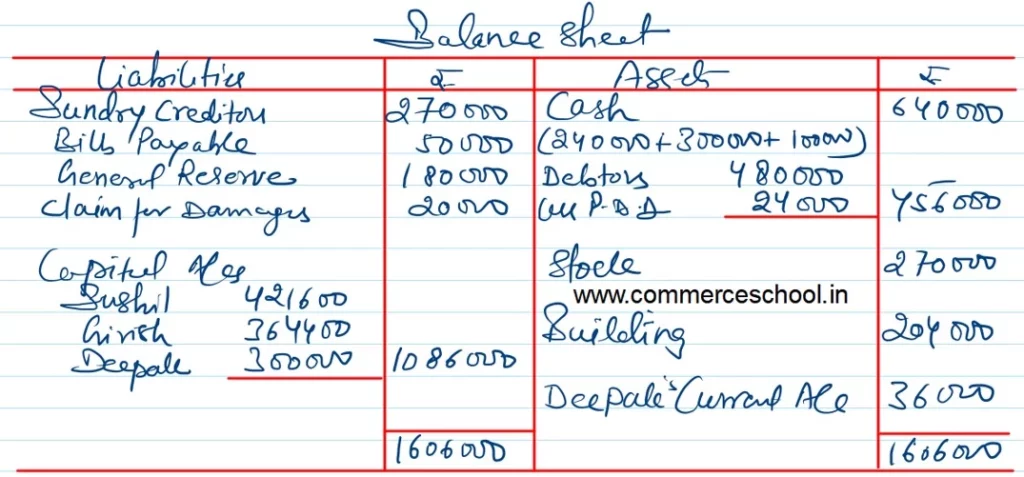 Balance Sheet
Liabilities ₹ Assets ₹
Sundry Creditors 270000 Cash 640000
Bills Payable 50000 (240000+300000+100000)
General Reserve 180000 Debtors 480000
Claim for Damages 20000 P.B.D 24000 456000
Capital A/cs
Stock 270000
Sushil 421600
www.commerceschool.in
Girish 364400 Building 204000
Deepak 300000 1086000
Deepak's Current A/c 36000
1606000 1606000